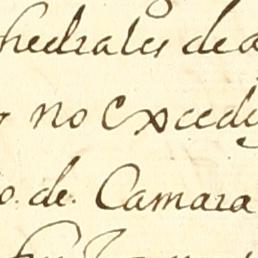 thedrales de a
no excedi
o de Camara